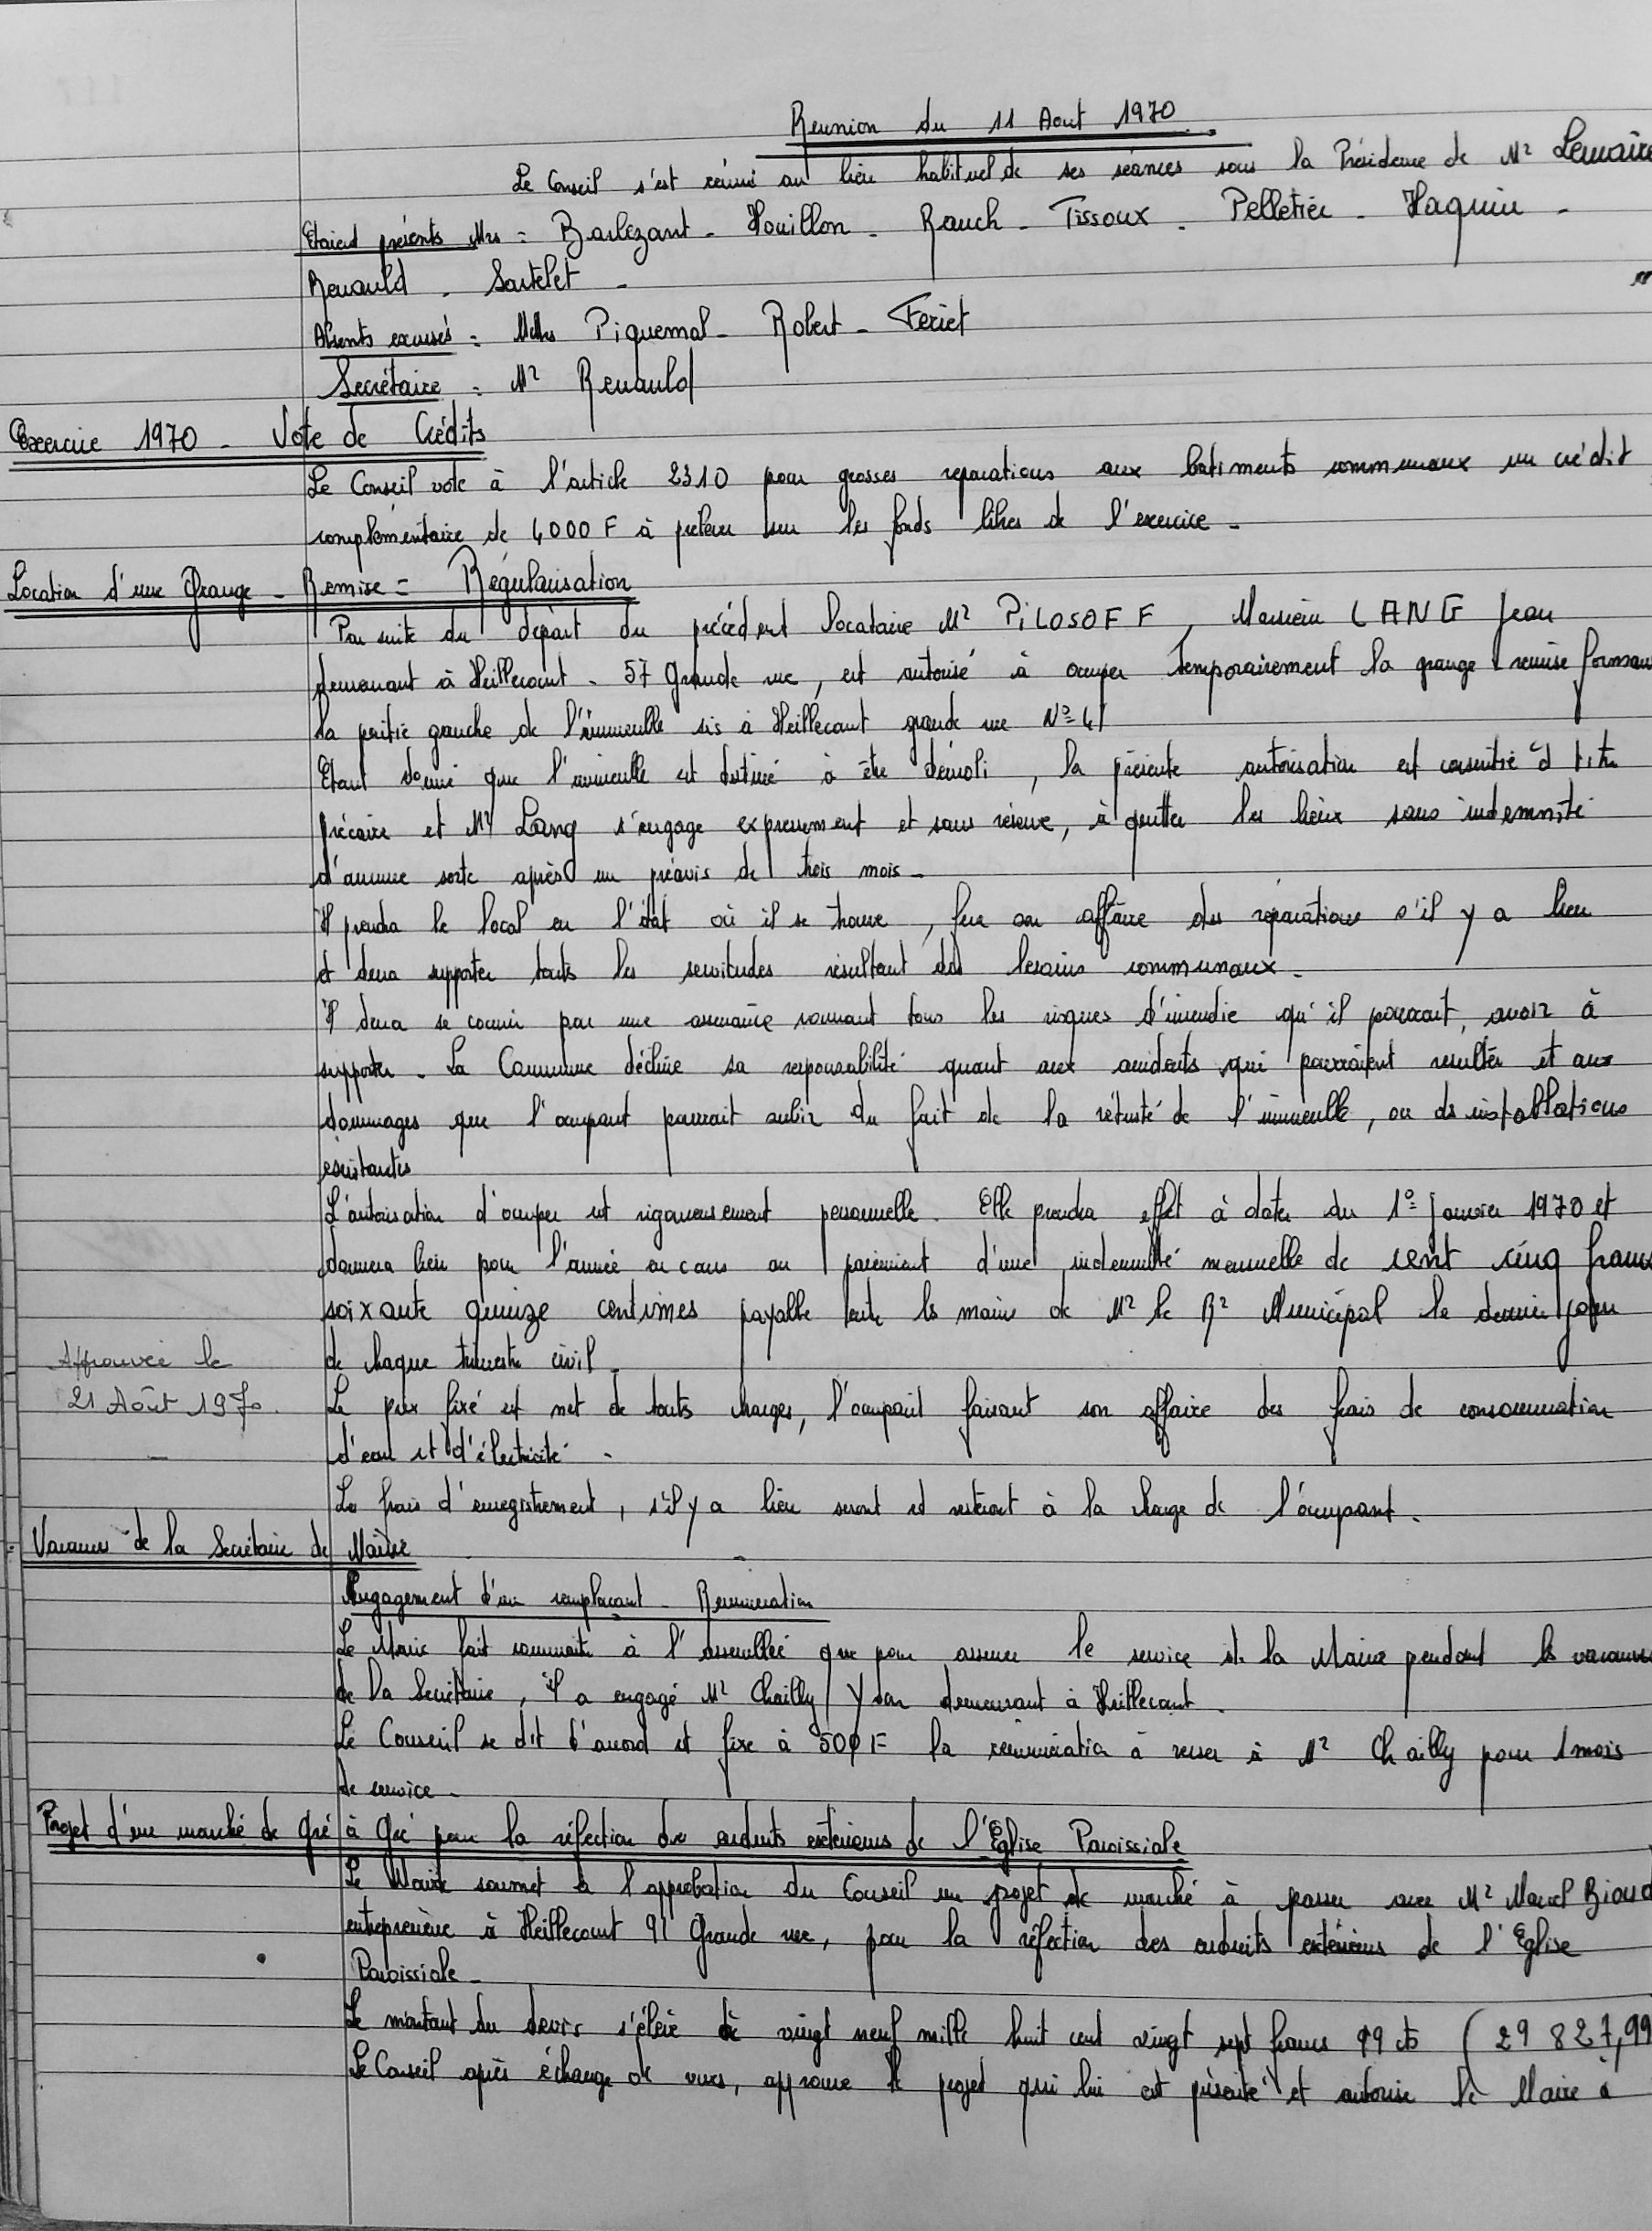 Reunion du 11 Aout 1970
Le Conseil s'est réuni au lieu habituel de ses séances sous la Présidence de Mr Lemaire
Etaient présents Mrs = Barlezant - Houillon - Rauch - Tissoux - Pelletier - Haquin -
Renauld - Sartelet -
Absents excusés = Mrs Piquemal - Robert - Feriet
Secrétaire = Mr Renauld
Exercice 1970 - Vote de Crédits
Le Conseil vote à l'article 2310 pour grosses reparations aux batiments communaux un crédit
complémentaire de 4000 F à prelever sur les fonds libres de l'exercice -
Location d'une Grange - Remise = Régularisation
Par suite du départ du précédent locataire Mr PiLOSOFF, Monsieur LANG Jean
demeurant à Heillecourt - 57 Grande rue, est autorisé à occuper temporairement la grange remise formant
la partie gauche de l'immeuble sis à Heillecourt grande rue No 41
Etant donné que l'immeuble est destiné à être démoli, la présente autorisation est consentie à titre
précaire et Mr Lang s'engage expressement et sans réserve, à quitter les lieux sans indemnité
d'aucune sorte après un préavis de trois mois -
Il prendra le local en l'état où il se trouve, fera son affaire des réparations s'il y a lieu
et devra supporter toutes les servitudes résultant des besoins communaux -
Il devra se couvrir par une assurance couvrant tous les risques d'incendie qu'il pourrait, avoir à
supporter - La Commune décline sa responsabilité quant aux accidents qui pourraient résulter et aux
dommages que l'occupant pourrait subir du fait de la vétusté de l'immeuble, ou ds installations
existantes
L'autorisation d'occuper est rigoureusement personnelle. Elle prendra effet à dater du 1o Janvier 1970 et
donnera lieu pour l'année en cours au paiement d'une indemnité mensuelle de cent cinq francs
soixante quinze centimes payable entre les mains de Mr le Rr Municipal le dernier jour
de chaque trimestre civil -
Approuvée le
21 Août 1970.
Le prix fixé est net de toutes charges, l'occupant faisant son affaire des frais de consommation
d'eau et d'électricité -
Les frais d'enregistrement, s'il y a lieu seront et resteront à la charge de l'occupant.
Vacances de la Secrétaire de Mairie
Engagement d'un remplaçant - Remuneration
Le Maire fait connaitre à l'assemblée que pour assurer le service de la Mairie pendant les vacances
de la Secrétaire, il a engagé Mr Chailly Yvan demeurant à Heillecourt.
Le Conseil se dit d'accord et fixe à 500 F la rémunération à verser à Mr Chailly pour 1 mois
de service -
Projet d'un marché de Gré à Gré pour la réfection des enduits extérieurs de l'Eglise Paroissiale
Le Maire soumet à l'approbation du Conseil un projet de marché à passer avec Mr Marcel
entrepreneur à Heillecourt 91 Grande rue, pour la réfection des enduits extérieurs de l'Eglise
Paroissiale -
Le montant du devis s'élève à vingt neuf mille huit cent vingt sept francs 99 cts (29 827,99
Le Conseil après échange de vues, approuve le projet qui lui est présenté et autorise le Maire à